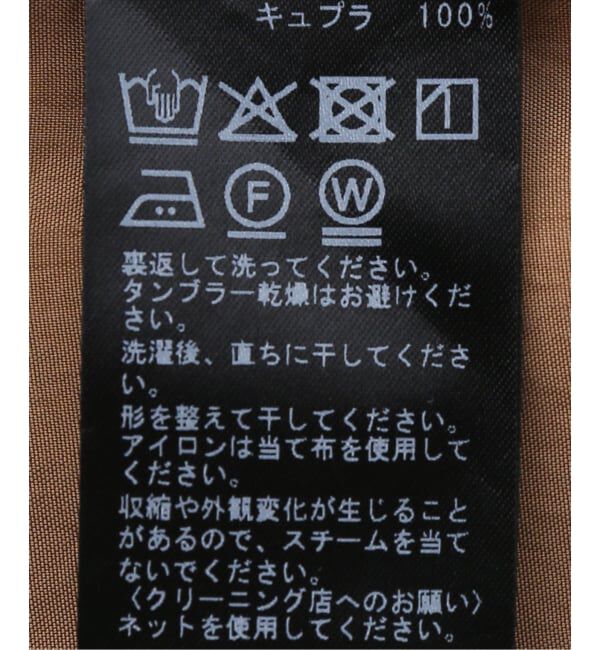 キュプラ 100%
F W
裏返して洗ってください。
タンブラー乾燥はお避けくだ
さい。
洗濯後、直ちに干してくださ
い。
形を整えて干してください。
アイロンは当て布を使用して
ください。
収縮や外観変化が生じること
があるので、スチームを当て
ないでください。
〈クリーニング店へのお願い〉
ネットを使用してください。